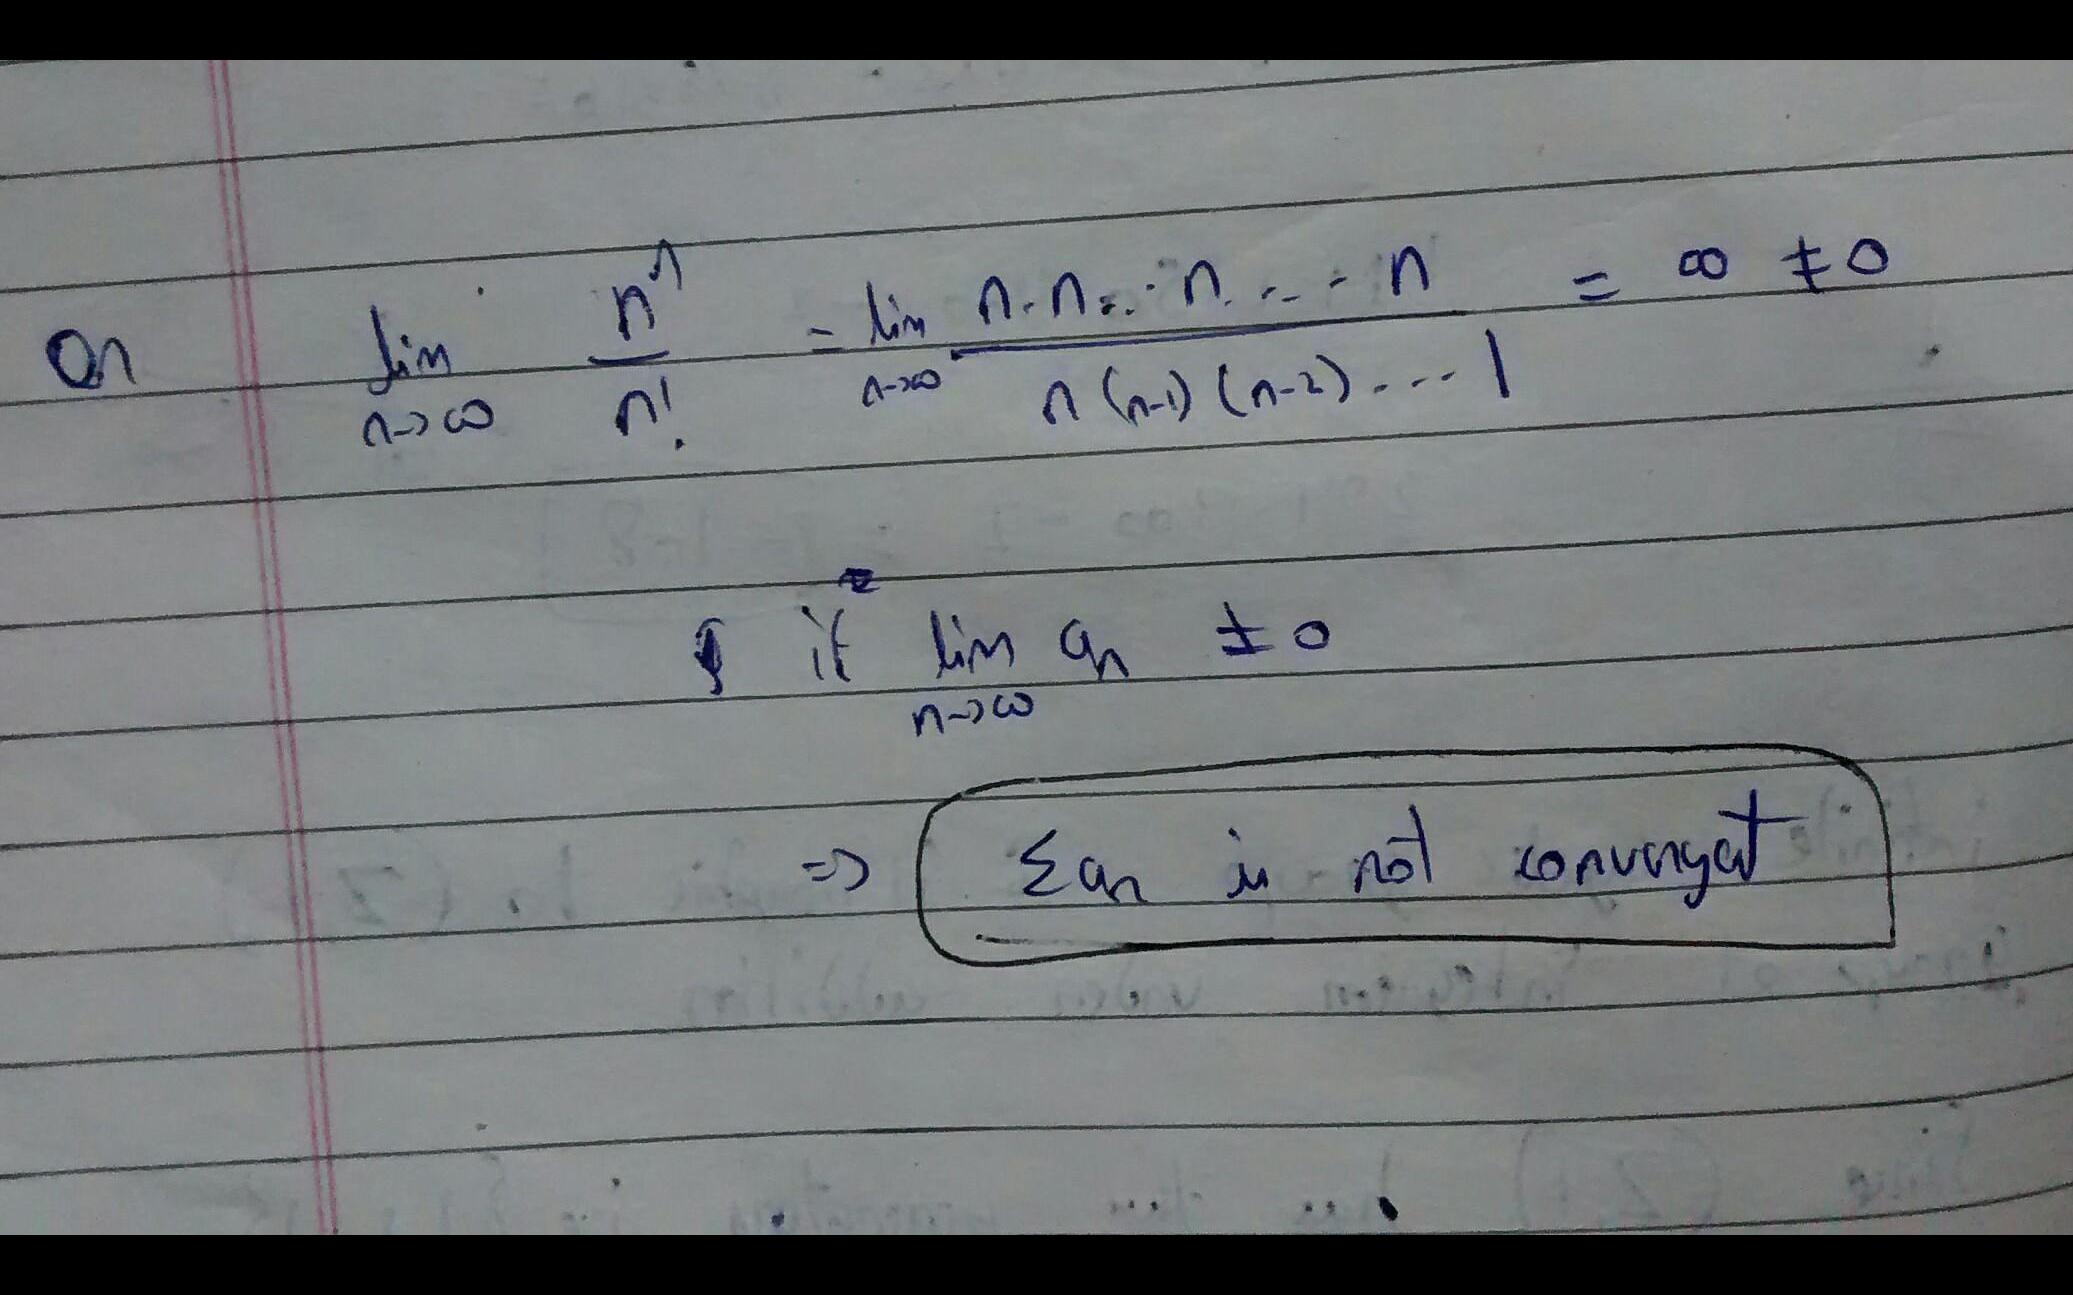 Or lim n→∞ n^n / n! = lim n→∞ n·n..·n....n / n(n-1)(n-2)....1 = ∞ ≠ 0
if lim n→∞ an ≠ 0
⇒ Σan is not convergat